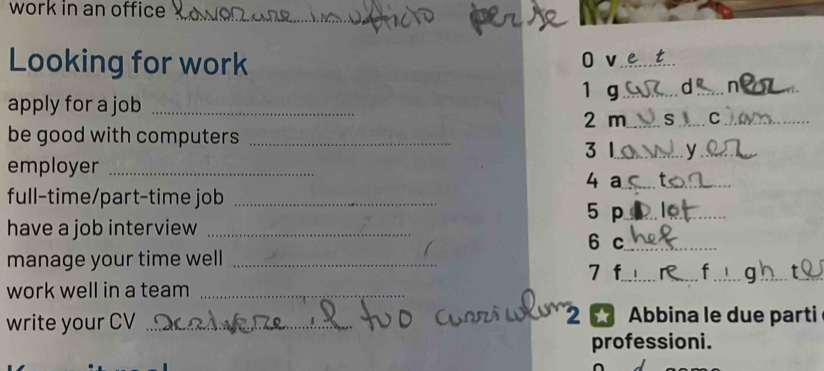 work in an office lavorare in ufficio per te
Looking for work
apply for a job
be good with computers
employer
full-time/part-time job
have a job interview
manage your time well
work well in a team
write your CV scrivere il tuo curriculum
0 v e t
1 g ar de ner
2 m u s i c ian
3 l aw y er
4 a c t or
5 p i lot
6 c hef
7 f i re f i gh ter
2 Abbina le due parti
professioni.